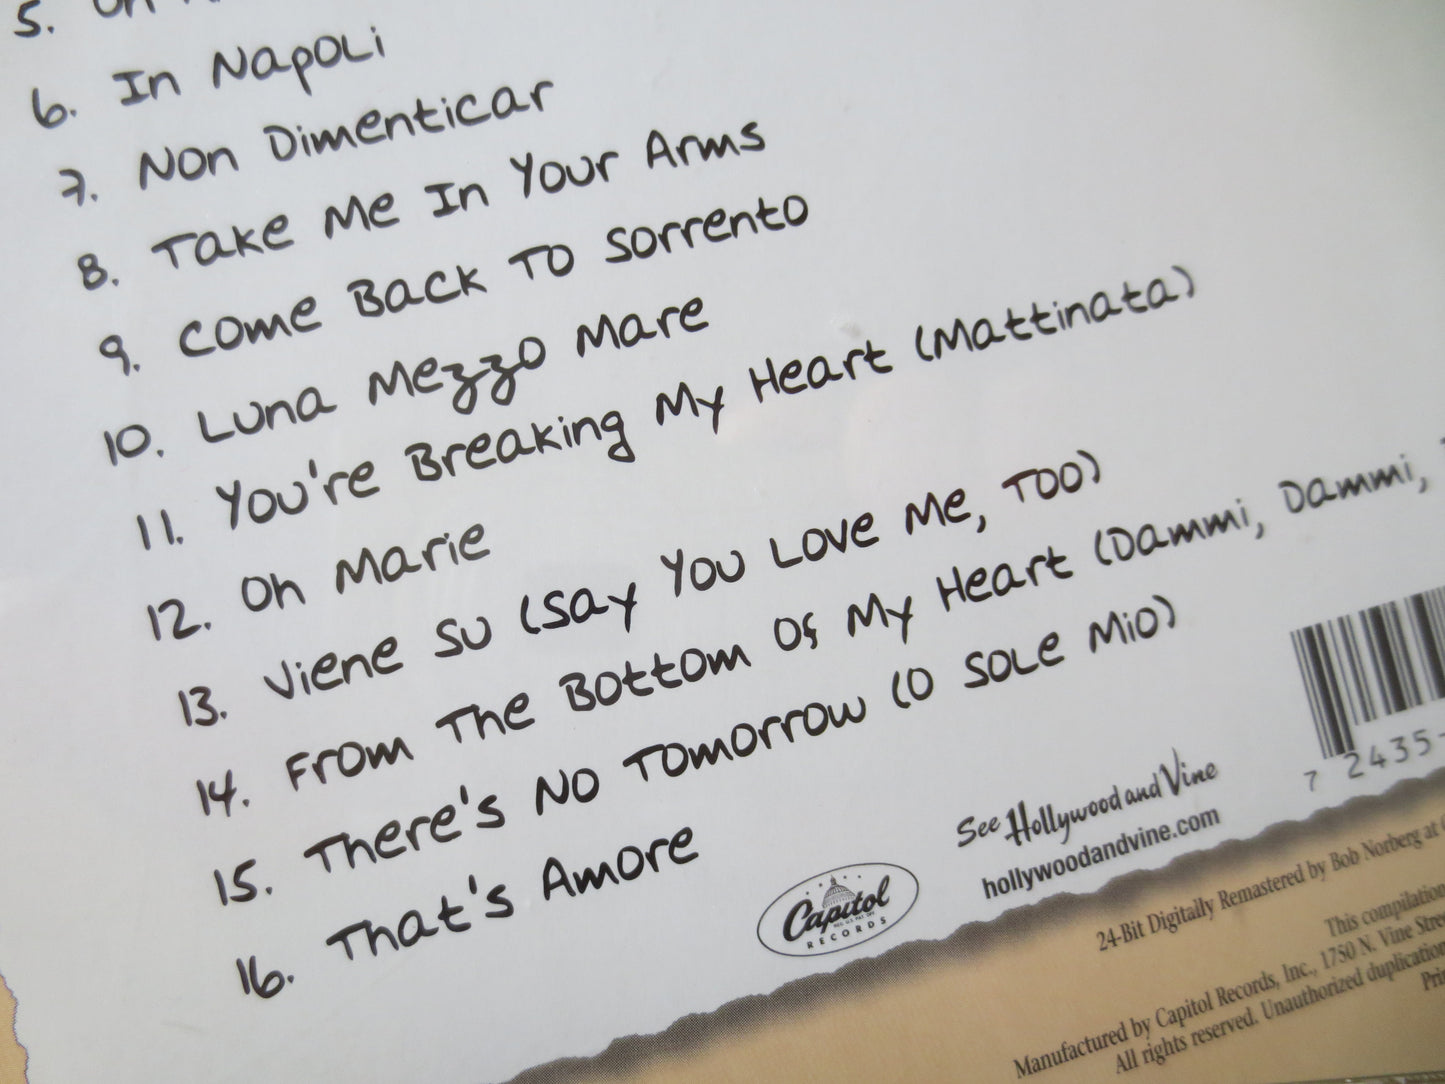 5.
6. In Napoli
7. Non Dimenticar
8. Take Me In Your Arms
9. Come Back To Sorrento
10. Luna Mezzo Mare
11. You're Breaking My Heart (Mattinata)
12. Oh Marie
13. Viene Su (Say You Love Me, Too)
14. From The Bottom Of My Heart (Dammi, Dammi,
15. There's No Tomorrow (O Sole Mio)
16. That's Amore
7 2435
Capitol
RECORDS
See Hollywood and Vine
hollywoodandvine.com
24-Bit Digitally Remastered by Bob Norberg at
This compilation
Manufactured by Capitol Records, Inc., 1750 N. Vine Stre
All rights reserved. Unauthorized duplication
Pri